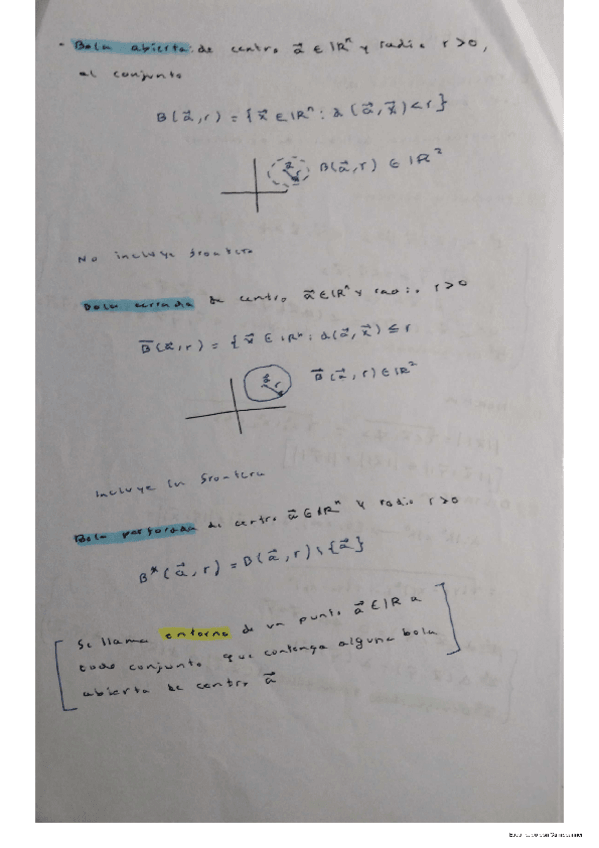 - Bola abierta: de centro a⃗ ∈ ℝⁿ y radio r>0,
al conjunto
B(a⃗,r) = {x⃗ ∈ ℝⁿ: d(a⃗,x⃗)<r}
a⃗ r B(a⃗,r) ∈ ℝ²
No incluye frontera
Bola cerrada de centro a⃗ ∈ ℝⁿ y radio r>0
B̅(a⃗,r) = {x⃗ ∈ ℝⁿ: d(a⃗,x⃗) ≤ r
a⃗ r B̅(a⃗,r) ∈ ℝ²
incluye la frontera
Bola perforada de centro a⃗ ∈ ℝⁿ y radio r>0
B*(a⃗,r) = B(a⃗,r) \ {a⃗}
Se llama entorno de un punto a⃗ ∈ ℝ a
todo conjunto que contenga alguna bola
abierta de centro a⃗